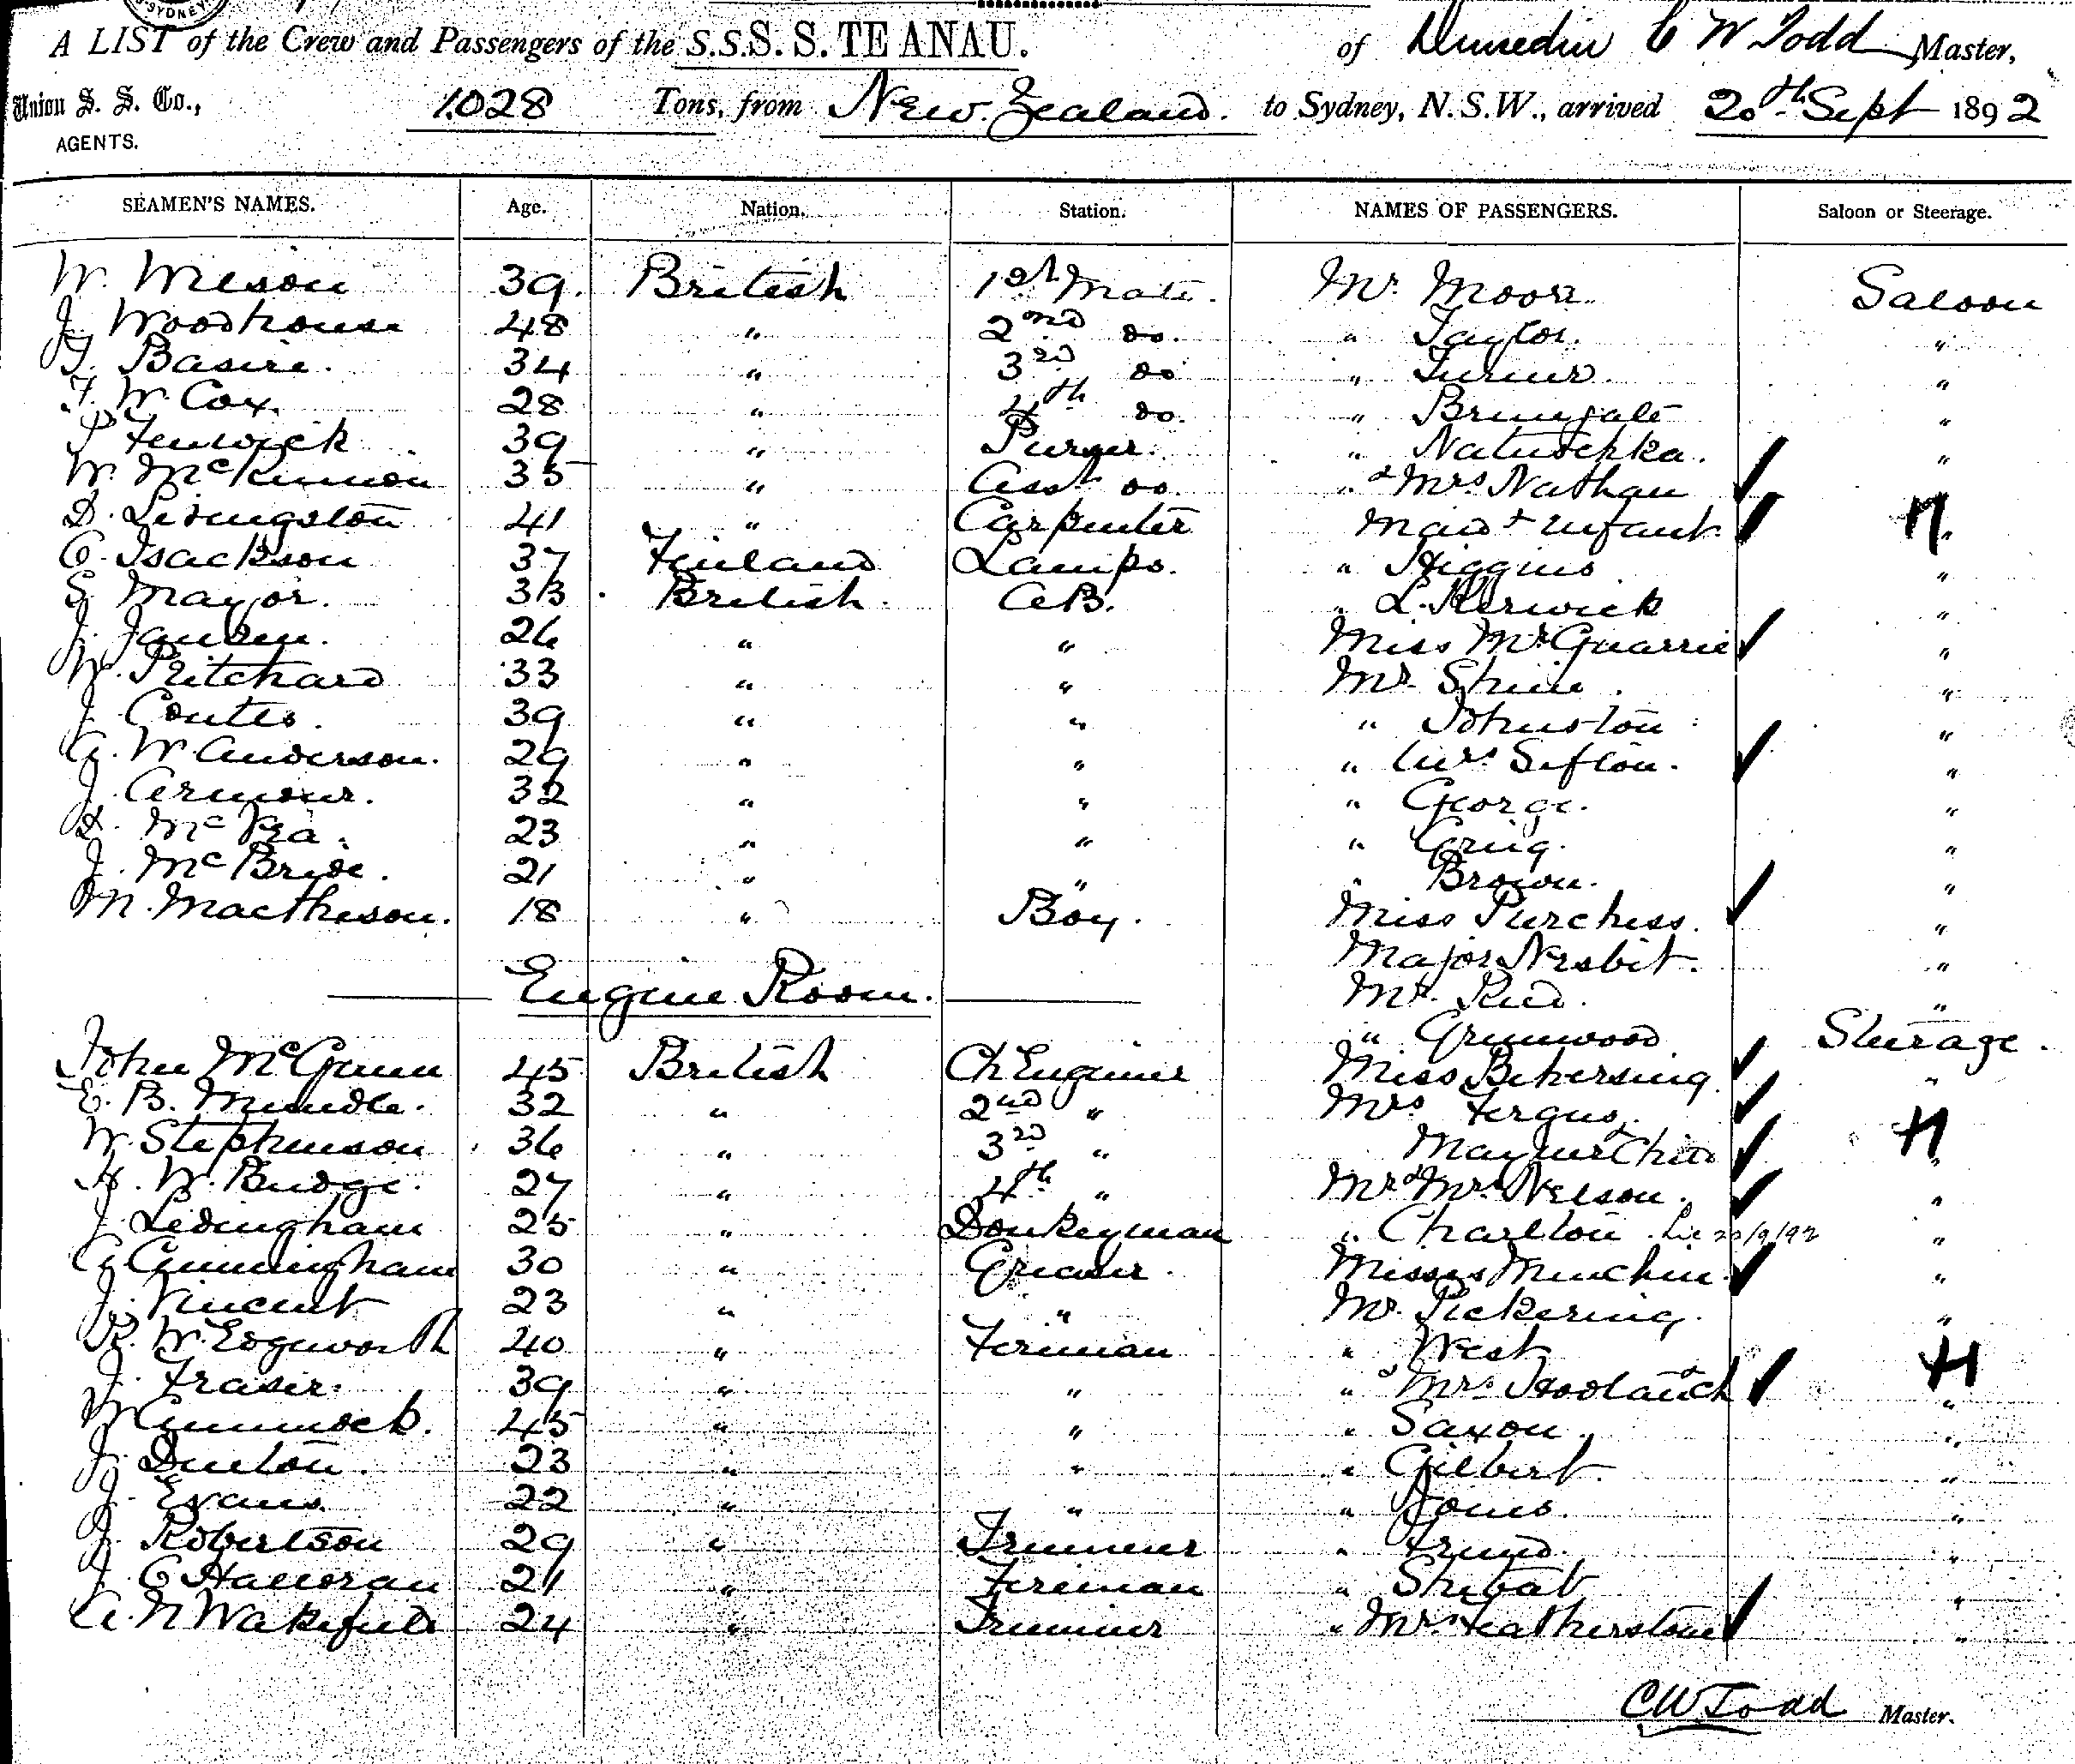 SYDNEY
A LIST of the Crew and Passengers of the S.S. S. S. TE ANAU. of Dunedin C W Todd Master,
Union S. S. Co., AGENTS. 1.028 Tons, from New Zealand. to Sydney, N.S.W., arrived 20th Sept 1892
SEAMEN'S NAMES. Age. Nation. Station. NAMES OF PASSENGERS. Saloon or Steerage.
W. Meson 39. British 1st Mate. Mr. Moore Saloon
J. Woodhouse 48 " 2nd do. " Taylor. "
Basire. 34 " 3rd do " Turner. "
F. W. Cox. 28 " 4th do. " "
P Fenwick 39 " Purser. " Natuschka. "
W. McKinnon 35 " Asst do. " & Mrs Nathan
D. Livingston 41 " Carpenter Maid & Infant. "
C. Isackson 37 Finland Lamps. " Higgins "
S. Mayor. 33 British. A.B. " L. Kerwick "
J. Jansen. 26 " " Miss McQuarrie "
W. Pritchard 33 " " Mr. "
J. Coutts. 39 " " " Johnston "
A. W. Anderson. 29 " " " Mrs Sefton. "
J. Armour. 32 " " " George. "
D. McRea. 23 " " " Greig. "
J. McBride. 21 " " " Brown. "
M. Mactheson. 18 " Boy. Miss Purchess. "
Major Nesbit. "
Engine Room. Mr. Reid. "
" Greenwood Steerage.
John McGunn 45 British Ch Engineer Miss "
E. B. Mundle. 32 " 2nd " Mrs Fergus
W. Stephenson 36 " 3rd " & Child H "
W. Budge. 27 " 4th " Mr & Mrs Nelson. "
J. Ledingham 25 " Donkeyman " Charlton. 22/9/92 "
Cunningham 30 " Greaser. Misses Minchin. "
J. Vincent 23 " " Mr. Pickering. "
R. W. Edgeworth 40 " Fireman " West H
J. Fraser. 39 " " " & Mrs "
W Cummock. 45 " " " Saxon. "
J. Dunton. 23 " " " Gilbert. "
J. Evans. 22 " " " Jones. "
J. Robertson 29 " Trimmer " Friend. "
J. O Halloran 21 " Fireman " "
A. N Wakefield 24 " Trimmer " Mrs Featherstone "
CW Todd Master.